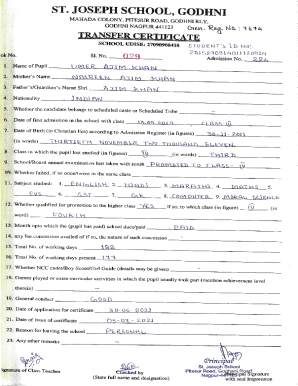 ST. JOSEPH SCHOOL, GODHNI
MAHADA COLONY, PITESUR ROAD, GODHNI RLY,
GODHNI NAGPUR 441123
Gen. Reg. No: 7694
TRANSFER CERTIFICATE
SCHOOL UDISE: 27090908410
STUDENT'S ID NO:
ok No. Sl. No. 029 Admission No. 224
1 Name of Pupil UMER AJIM KHAN
2 Mother's Name NAUREEN AJIM KHAN
3 Father's/Guardian's Name Shri AJIM KHAN
4 Nationality INDIAN
5 Whether the candidate belongs to scheduled caste or Scheduled Tribe
6 Date of first admission in the school with class
7 Date of Birth (in Christian Era) according to Admission Register (in figures) 30-11-2011
(in words) THIRTIETH NOVEMBER TWO THOUSAND ELEVEN
8 Class in which the pupil last studied (in figures) (in words) THIRD
9 School/Board annual examination last taken with result PROMOTED TO CLASS - IV
10 Whether failed, if so once/twice in the same class
11 Subject studied: 1. ENGLISH 2. HINDI 3. MARATHI 4. MATHS 5.
EVS 6. GST 7. G.K 8. COMPUTER 9. MORAL SCIENCE
12 Whether qualified for promotion to the higher class YES if so, to which class (in figure) IV (in
word) FOURTH
13 Month upto which the pupil has paid school dues/paid PAID
14 any fee concession availed of if so, the nature of such concession
15 Total No. of working days 182
16 Total No. of working days present 177
17 Whether NCC cadet/Boy Scout/Girl Guide (details may be given)
18
19 General conduct GOOD
20 Date of application for certificate 30-06-2021
21 Date of issue of certificate 05-07-2021
22 Reason for leaving the school PERSONAL
23 Any other remarks
Principal
St. Joseph School
Signature of Class Teacher
Checked by
(State full name and designation)
Signature
with seal Impression